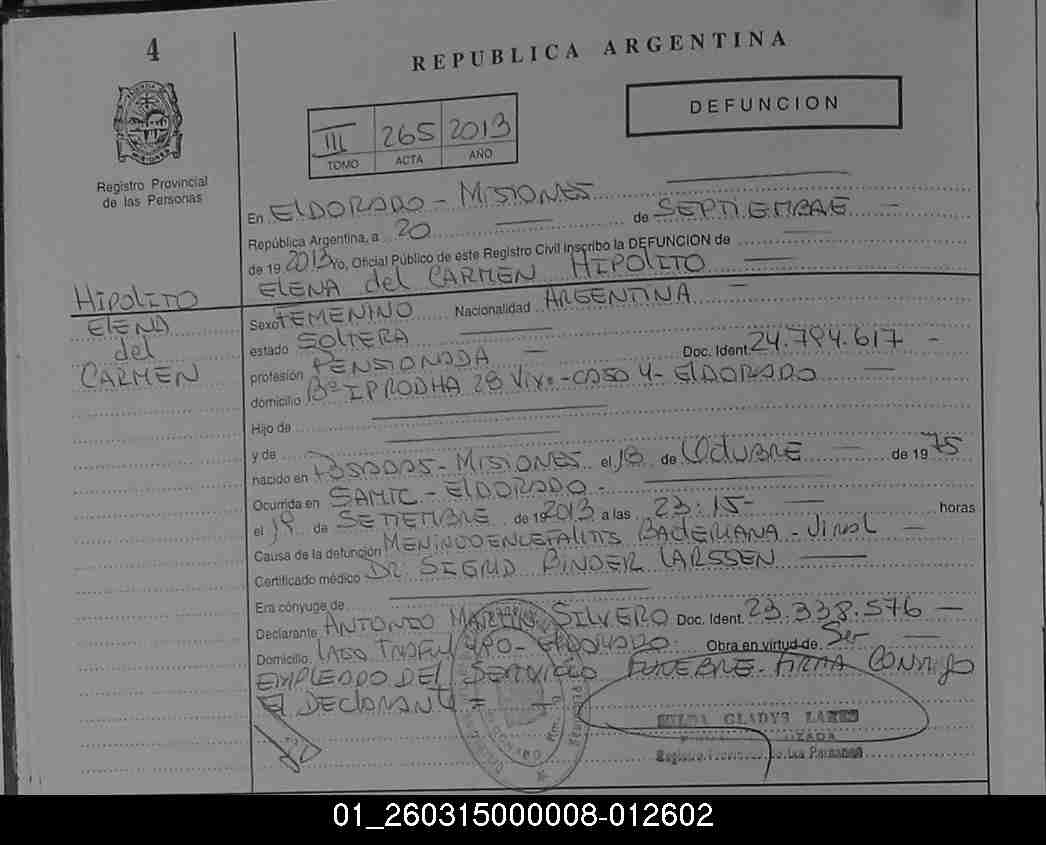 4
REPUBLICA ARGENTINA
DEFUNCION
III 265 2013
TOMO ACTA AÑO
Registro Provincial
de las Personas
En ELDORADO - MISIONES
República Argentina, a 20 de SEPTIEMBRE -
de 19 2013 Yo, Oficial Público de este Registro Civil inscribo la DEFUNCION de
ELENA del CARMEN HIPOLITO
HIPOLITO
ELENA
del
CARMEN
Sexo FEMENINO Nacionalidad ARGENTINA -
estado SOLTERA
profesión PENSIONADA - Doc. Ident. 24.794.617 -
domicilio Bº IPRODHA 28 Viv. - CASA 4 - ELDORADO
Hijo de
y de
nacido en POSADAS - MISIONES el 18 de OCTUBRE de 19 75
Ocurrida en SAMIC - ELDORADO -
el 19 de SETIEMBRE de 19 2013 a las 23:15 - horas
Causa de la defunción MENINGOENCEFALITIS BACTERIANA - Viral
Certificado médico DR. SIGRID PINDER LARSSEN
Era cónyuge de
Declarante ANTONIO MARTIN SILVERO Doc. Ident. 23.338.576 -
Domicilio LAGO 490 - ELDORADO Obra en virtud de Ser
EMPLEADO DEL SERVICIO FUNEBRE - FIRMA CONMIGO
EL DECLARANTE =
GLADYS
Registro Provincial de las Personas
01_260315000008-012602